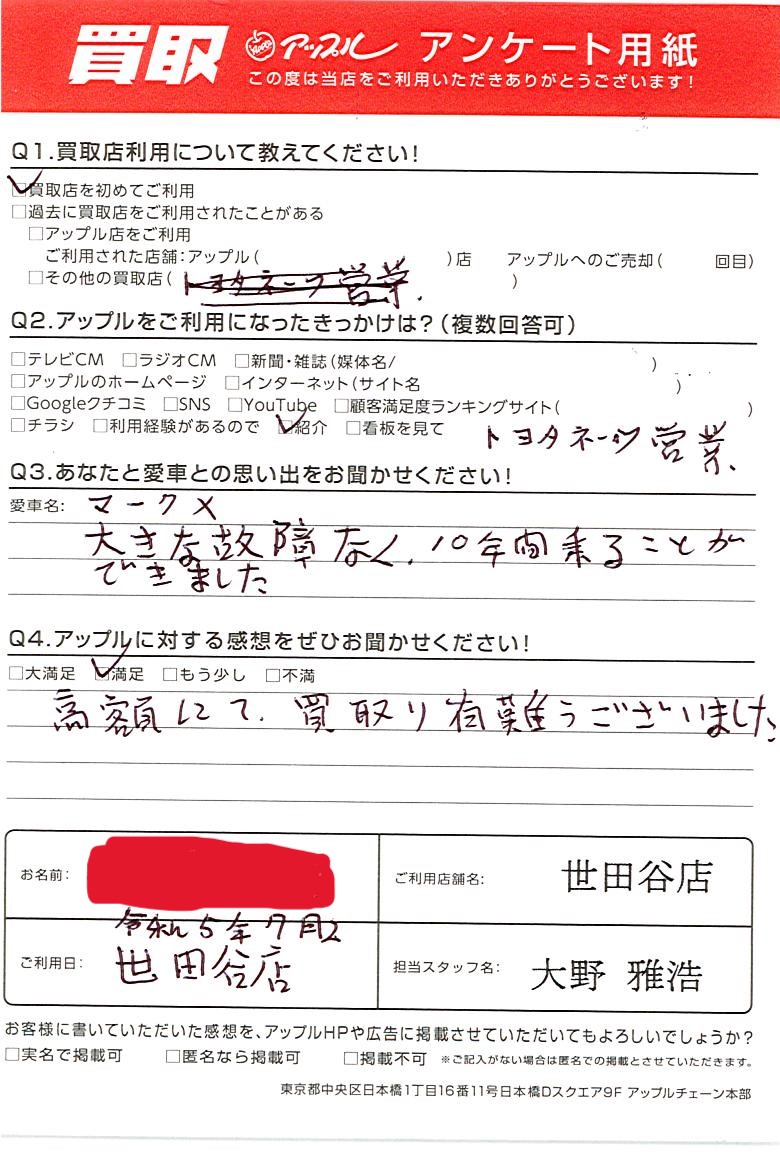 買取 アップル アンケート用紙
この度は当店をご利用いただきありがとうございます!
Q1.買取店利用について教えてください!
□買取店を初めてご利用
□過去に買取店をご利用されたことがある
□アップル店をご利用
ご利用された店舗:アップル( )店 アップルへのご売却( 回目)
□その他の買取店( トヨタネーツ営業. )
Q2.アップルをご利用になったきっかけは?(複数回答可)
□テレビCM □ラジオCM □新聞・雑誌(媒体名/ )
□アップルのホームページ □インターネット(サイト名 )
□Googleクチコミ □SNS □YouTube □顧客満足度ランキングサイト( )
□チラシ □利用経験があるので □紹介 □看板を見て トヨタネーツ営業.
Q3.あなたと愛車との思い出をお聞かせください!
愛車名: マークX
大きな故障なく.10年間乗ることが
できました
Q4.アップルに対する感想をぜひお聞かせください!
□大満足 □満足 □もう少し □不満
高額にて.買取り有難うございました
お名前:
ご利用店舗名: 世田谷店
令和5年7月2
ご利用日: 世田谷店
担当スタッフ名: 大野 雅浩
お客様に書いていただいた感想を、アップルHPや広告に掲載させていただいてもよろしいでしょうか?
□実名で掲載可 □匿名なら掲載可 □掲載不可 ※ご記入がない場合は匿名での掲載とさせていただきます。
東京都中央区日本橋1丁目16番11号日本橋Dスクエア9F アップルチェーン本部